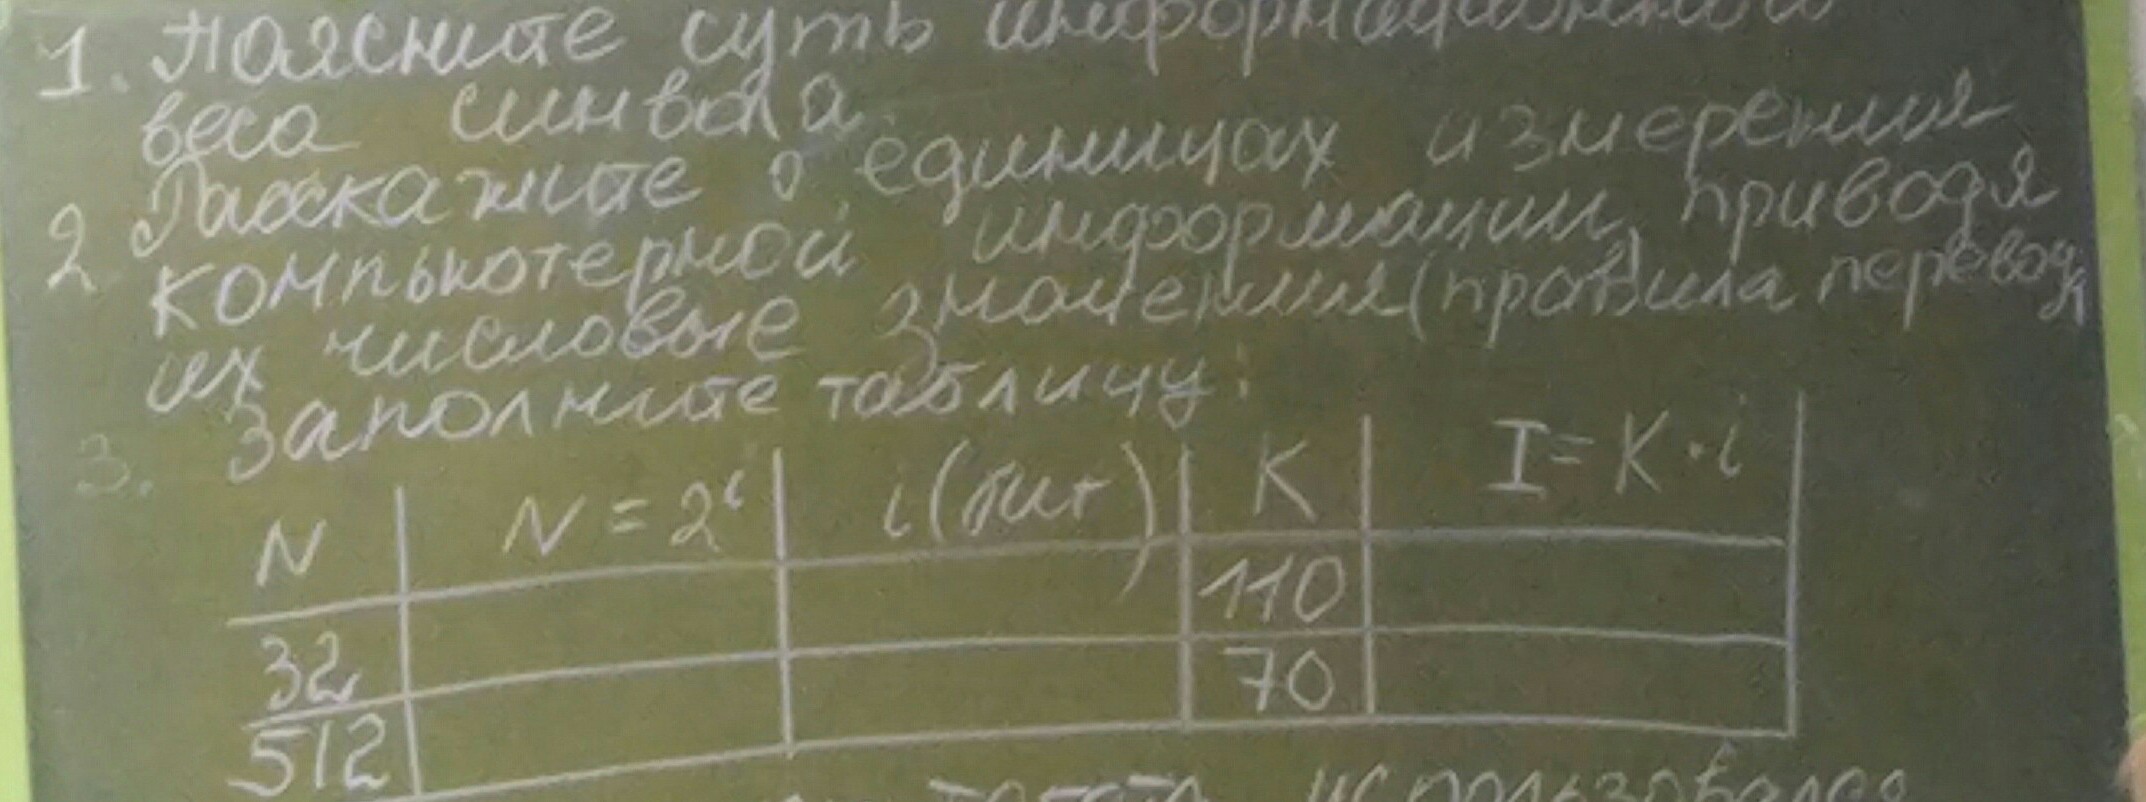 1. Поясните суть информационной
веса символа.
2 Расскажите о единицах измерения
компьютерной информации, приводя
их числовые значения (правила перевода
3. Заполните таблицу:
N N = 2ⁱ i (бит) K I = K · i
32 110
512 70
использовался